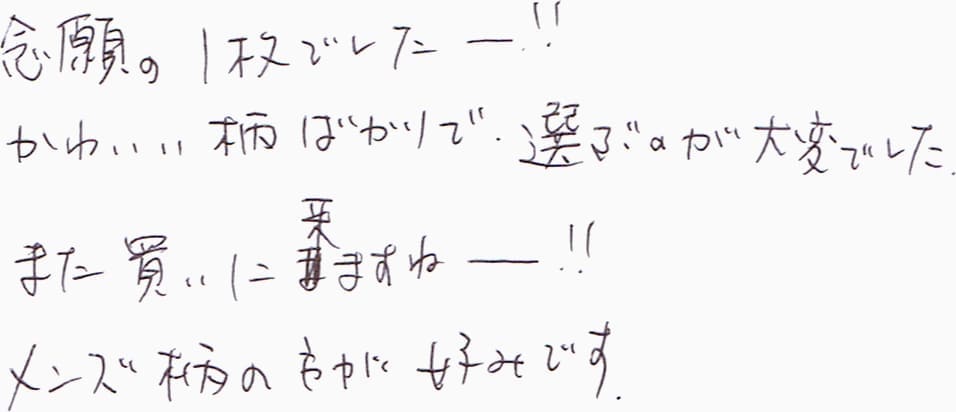 念願の1枚でしたー!!
かわいい柄ばかりで、選ぶのが大変でした.
また買いに来ますねー!!
メンズ柄の方が好みです.